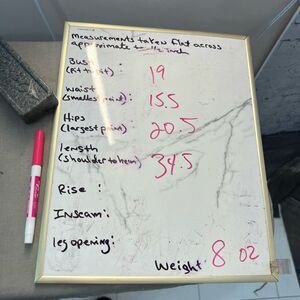 Measurements taken flat across
approximate to 1/2 inch
Bust : 19
(Pit to Pit)
waist : 15.5
(smallest point)
Hips : 20.5
(largest point)
length : 34.5
(shoulder to hem)
Rise :
Inseam :
leg opening :
Weight 8 oz